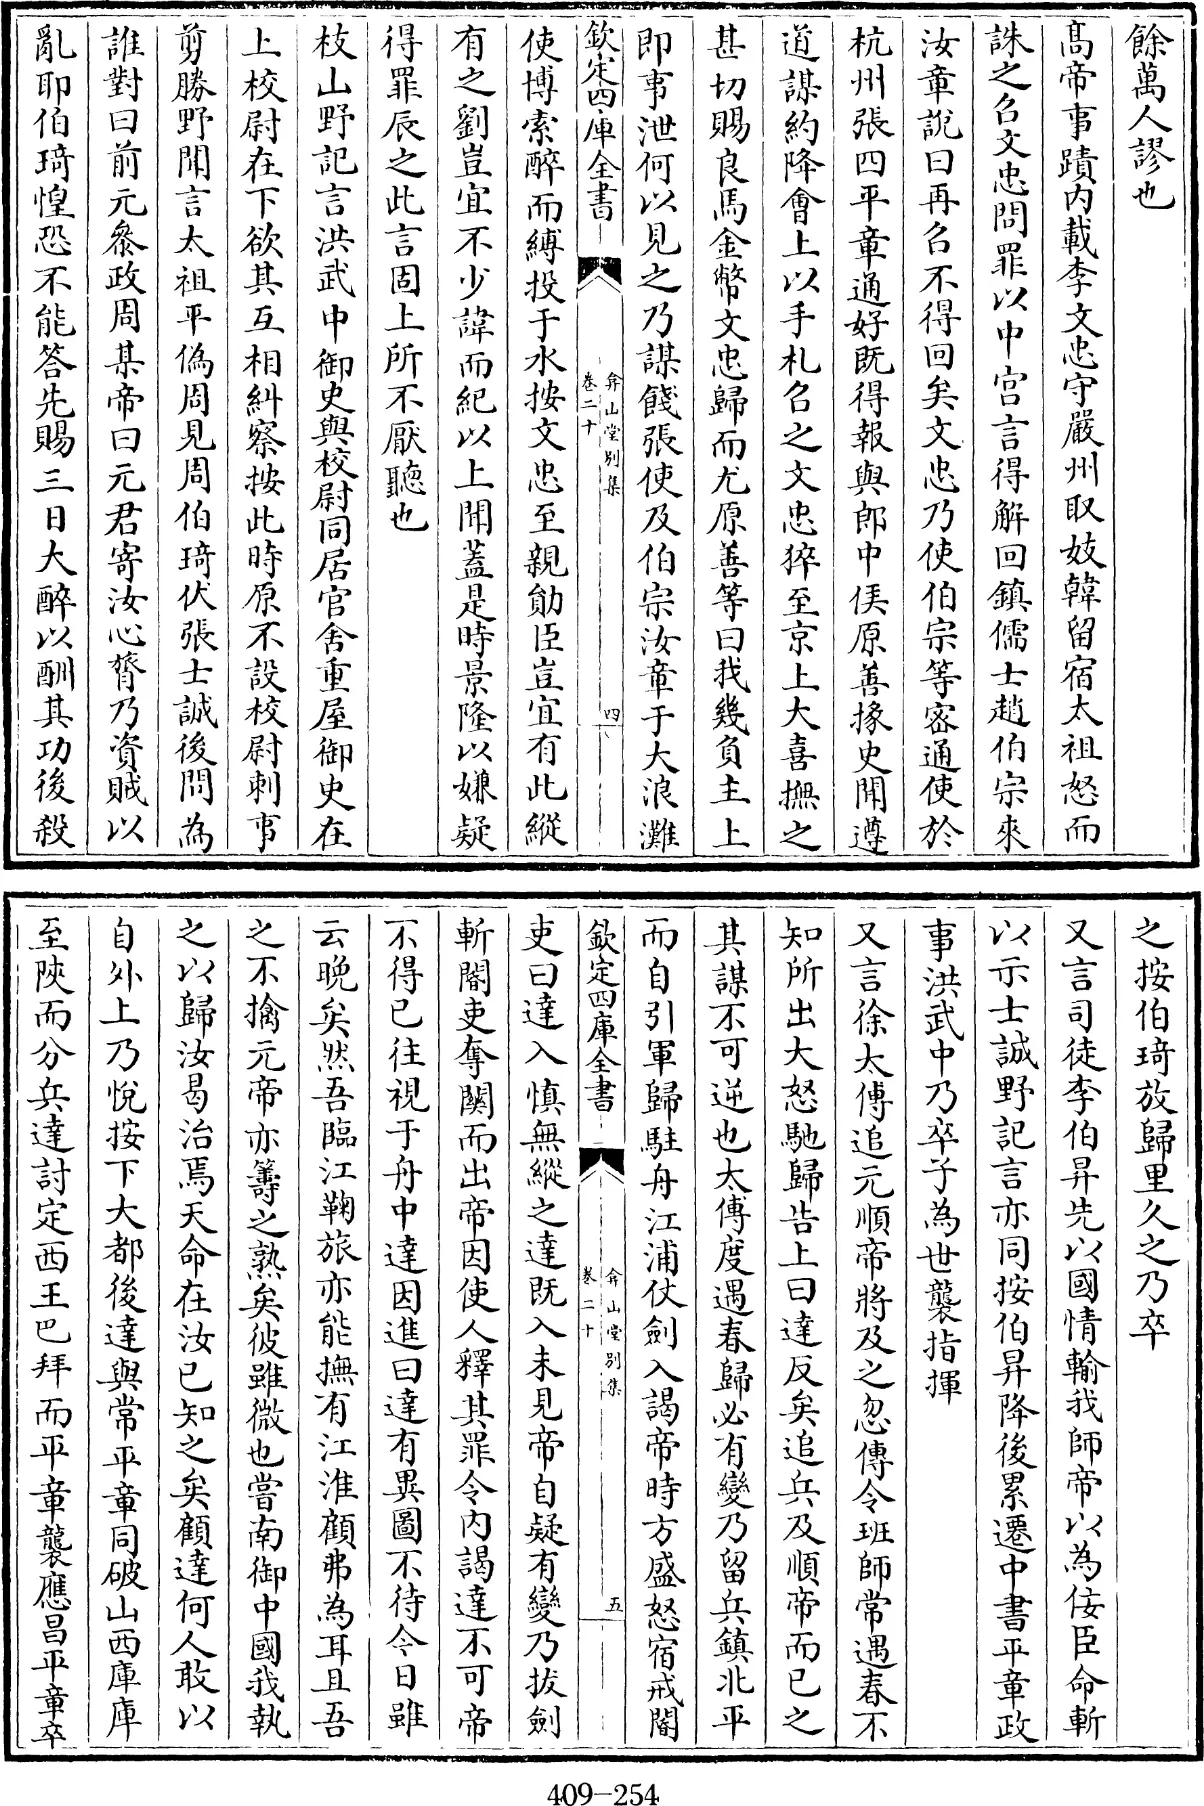 餘萬人謬也
髙帝事蹟内載李文忠守嚴州取妓韓留宿太祖怒而
誅之召文忠問罪以中宫言得解回鎮儒士趙伯宗來
汝章說曰再召不得回矣文忠乃使伯宗等宻通使於
杭州張四平章通好既得報與郎中侯原善掾史聞遵
道謀約降會上以手札召之文忠猝至京上大喜撫之
甚切賜良馬金幣文忠歸而尤原善等曰我幾負主上
即事泄何以見之乃謀餞張使及伯宗汝章于大浪灘
欽定四庫全書
弇山堂别集
卷二十
四
使博索醉而縛投于水按文忠至親勛臣豈宜有此縱
有之劉豈宜不少諱而紀以上聞蓋是時景隆以嫌疑
得罪辰之此言固上所不厭聽也
枝山野記言洪武中御史與校尉同居官舍重屋御史在
上校尉在下欲其互相糾察按此時原不設校尉刺事
剪勝野聞言太祖平偽周見周伯琦伏張士誠後問為
誰對曰前元叅政周某帝曰元君寄汝心膂乃資賊以
亂耶伯琦惶恐不能答先賜三日大醉以酬其功後殺
之按伯琦放歸里久之乃卒
又言司徒李伯昇先以國情輸我師帝以為佞臣命斬
以示士誠野記言亦同按伯昇降後累遷中書平章政
事洪武中乃卒子為世襲指揮
又言徐太傅追元順帝將及之忽傳令班師常遇春不
知所出大怒馳歸告上曰達反矣追兵及順帝而已之
其謀不可逆也太傅度遇春歸必有變乃留兵鎮北平
而自引軍歸駐舟江浦仗劍入謁帝時方盛怒宿戒閽
欽定四庫全書
弇山堂别集
卷二十
五
吏曰達入慎無縱之達既入未見帝自疑有變乃拔劍
斬閽吏奪關而出帝因使人釋其罪令内謁達不可帝
不得已往視于舟中達因進曰達有異圖不待今日雖
云晚矣然吾臨江鞠旅亦能撫有江淮顧弗為耳且吾
之不擒元帝亦籌之熟矣彼雖微也嘗南御中國我執
之以歸汝曷治焉天命在汝已知之矣顧達何人敢以
自外上乃悅按下大都後達與常平章同破山西庫庫
至陝而分兵達討定西王巴拜而平章襲應昌平章卒
409-254